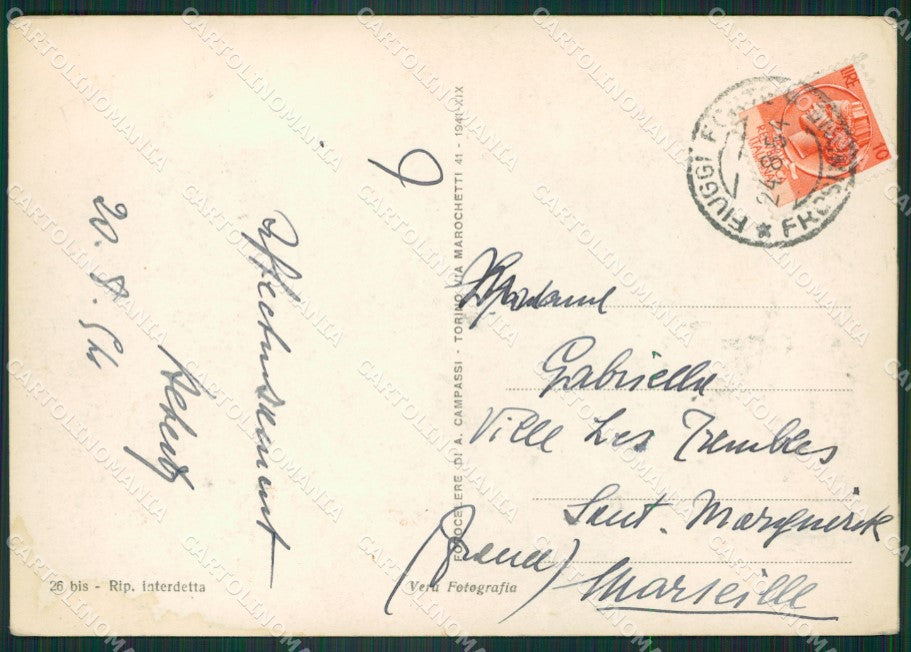 20.8.54
Affectueusement
9
FOTOCELERE DI A. CAMPASSI - TORINO VIA MAROCHETTI 41 - 1941-XIX
FIUGGI FONTE
24.8.54
FROSINONE
LIRE 10
Madame
Gabrielle
Ville Les Trembles
Saint. Marguerite
Marseille
(France)
26 bis - Rip. interdetta
Vera Fotografia
CARTOLINOMANIA